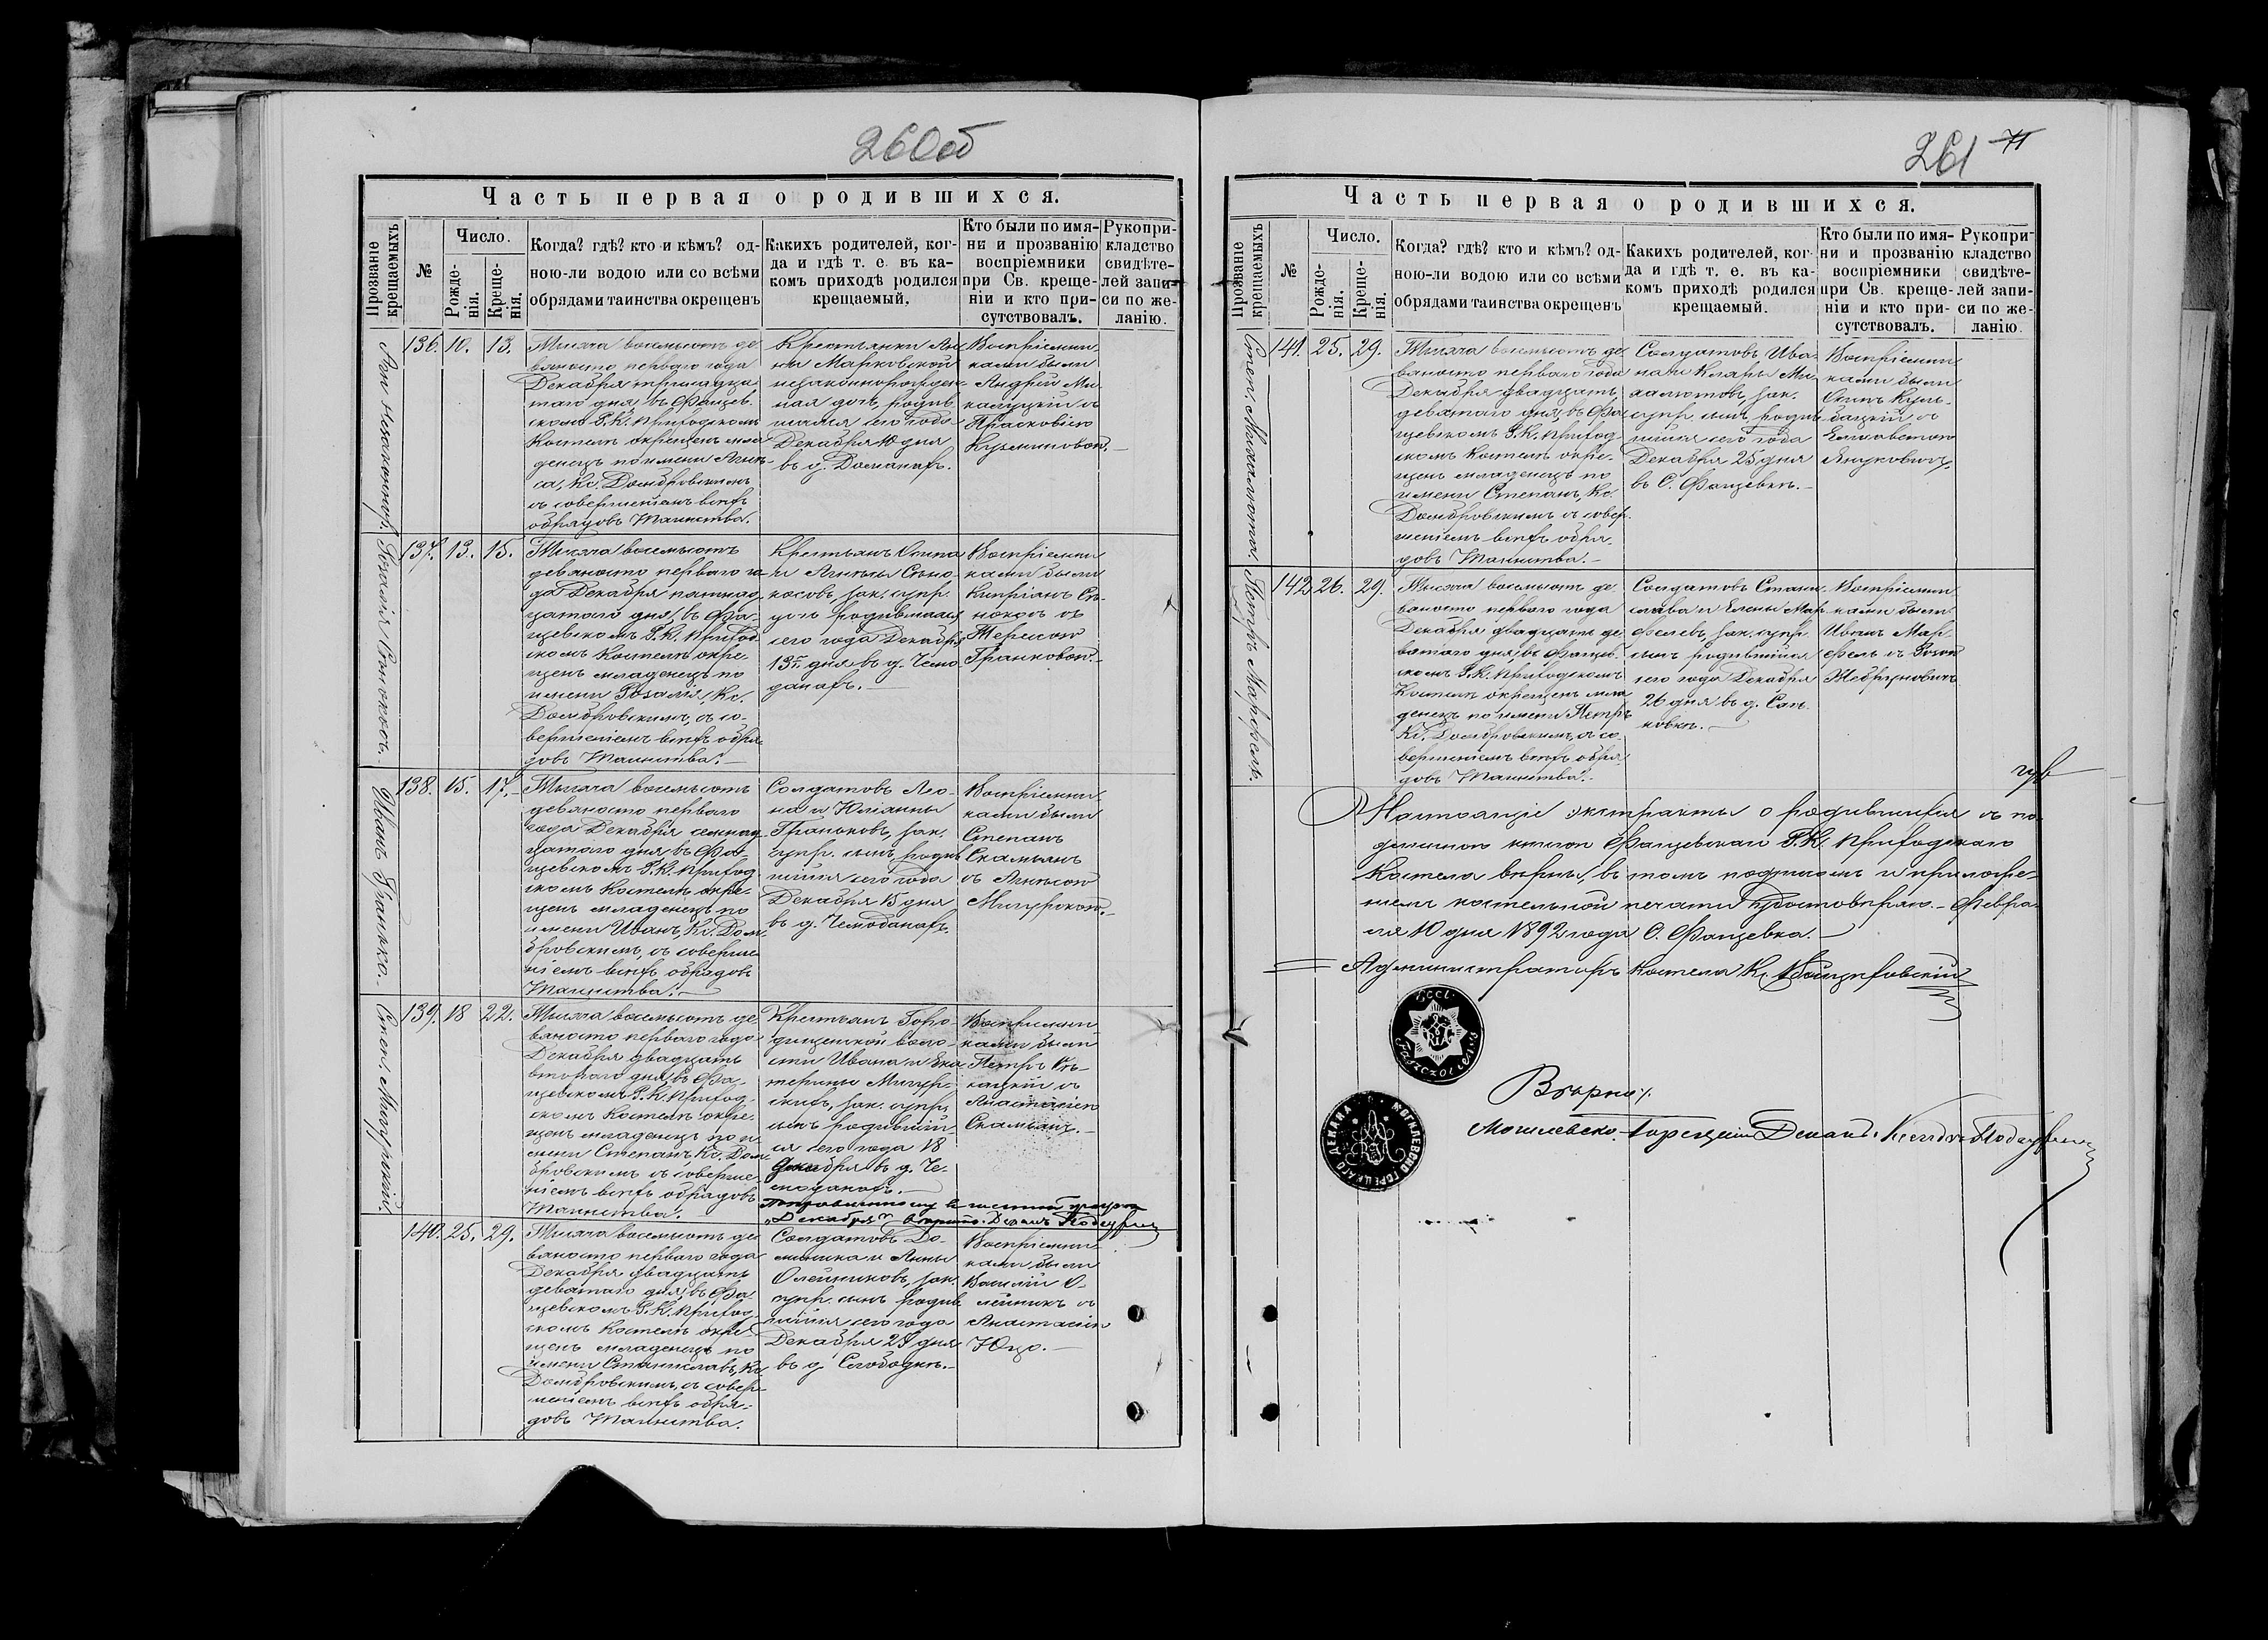 260об
Часть первая о родившихся.
Прозваніе крещаемыхъ
№
Число.
Рожде-
нія.
Креще-
нія.
Когда? гдѣ? кто и кѣмъ? од-
ною-ли водою или со всѣми
обрядами таинства окрещенъ
Какихъ родителей, ког-
да и гдѣ т. е. въ ка-
комъ приходѣ родился
крещаемый.
Кто были по имя-
ни и прозванію
воспріемники
при Св. креще-
ніи и кто при-
сутствовалъ.
Рукопри-
кладство
свидѣте-
лей запи-
си по же-
ланію.
136. 10. 13.
Тысяча восемьсотъ де
вяносто перваго года
Декабря тринадца
таго дня, въ Фащев
скомъ Р. К. приходскомъ
Костелѣ окрещенъ мла
денецъ по имени
Кс. Домбровскимъ
съ совершеніемъ всѣхъ
обрядовъ Таинства.
Крестьянки Ан
ны Марковской
незаконнорожден
ная дочь, родив
шаяся сего года
Декабря 10 дня
въ д.
Воспріемни
ками были
Андрей Ми
калуцкій съ
Прасковіею
137. 13. 15.
Розалія Сѣнокосъ.
Тысяча восемьсотъ
девяносто перваго го
да Декабря пятнад
цатаго дня, въ Фа-
щевскомъ Р. К. приход
скомъ Костелѣ окре-
щенъ младенецъ по
имени Розалія, Кс.
Домбровскимъ, съ со-
вершеніемъ всѣхъ обря
довъ Таинства.
Крестьянъ Осипа
и Агнеты Сѣно-
косовъ, зак. супр.
дочь родившаяся
сего года Декабря
13 дня въ д. Чемо
данахъ.
Воспріемни
ками были
Кипріанъ Сѣ-
нокосъ съ
Терезою
Гранковою.
138. 15. 17.
Иванъ Гранько.
Тысяча восемьсотъ
девяносто перваго
года Декабря семнад
цатаго дня, въ Фа-
щевскомъ Р. К. приход
скомъ Костелѣ окре-
щенъ младенецъ по
имени Иванъ, Кс. Дом
бровскимъ, съ соверше
ніемъ всѣхъ обрядовъ
Таинства.
Солдатовъ Лео-
на и Юліанны
Граньковъ, зак.
супр. сынъ, родив
шійся сего года
Декабря 15 дня
въ д. Чемоданахъ.
Воспріемни
ками были
Степанъ
Скамьянъ
съ Агнесою
139. 18 22.
Тысяча восемьсотъ де
вяносто перваго года
Декабря двадцать
втораго дня, въ Фа-
щевскомъ Р. К. приход-
скомъ Костелѣ окре-
щенъ младенецъ по и
мени Степанъ, Кс. Дом
бровскимъ съ соверше-
ніемъ всѣхъ обрядовъ
Таинства.
Крестьянъ Горо-
дищенской воло-
сти Ивана и Ека
терины
зак. супр.
сынъ родивший-
ся сего года 18
Декабря въ д. Че-
моданахъ.
Воспріемни
ками были
Петръ
съ
Анастасіею
Скамьянъ.
„Декабря“ вѣрно. Деканъ
140. 25. 29.
Тысяча восемьсотъ де
вяносто перваго года
Декабря двадцать
девятаго дня, въ Фа-
щевскомъ Р. К. приход-
скомъ Костелѣ окре-
щенъ младенецъ по
имени Станиславъ, Кс.
Домбровскимъ, съ совер-
шеніемъ всѣхъ обря-
довъ Таинства.
Солдатовъ До-
миника и Анны
Олейниковъ, зак.
супр. сынъ родив
шійся сего года
Декабря 25 дня
въ д. Слободкѣ.
Воспріемни-
ками были
Василій О-
лейникъ съ
Анастасіею
Юцо.
261 71
Часть первая о родившихся.
Прозваніе крещаемыхъ
№
Число.
Рожде-
нія.
Креще-
нія.
Когда? гдѣ? кто и кѣмъ? од-
ною-ли водою или со всѣми
обрядами таинства окрещенъ
Какихъ родителей, ког-
да и гдѣ т. е. въ ка-
комъ приходѣ родился
крещаемый.
Кто были по имя-
ни и прозванію
воспріемники
при Св. креще-
ніи и кто при-
сутствовалъ.
Рукопри-
кладство
свидѣте-
лей запи-
си по же-
ланію.
141. 25. 29.
Тысяча восемьсотъ де
вяносто перваго года
Декабря двадцать
девятаго дня, въ Фа
щевскомъ Р. К. приход
скомъ Костелѣ окре-
щенъ младенецъ по
имени Степанъ, Кс.
Домбровскимъ съ совер
шеніемъ всѣхъ обря-
довъ Таинства.
Солдатовъ Ива-
на и Клары Ми
халютовъ, зак.
супр. сынъ, родив
шійся сего года
Декабря 25 дня
въ С. Фащевкѣ.
Воспріемни
ками были
Осипъ Куль-
бацкій съ
Елизаветою
Янукович.
142 26. 29.
Петръ Марфель.
Тысяча восемьсотъ де-
вяносто перваго года
Декабря двадцать де
вятаго дня, въ Фащев-
скомъ Р. К. приходскомъ
Костелѣ окрещенъ мла
денецъ по имени Петръ
Кс. Домбровскимъ, съ со
вершеніемъ всѣхъ обря
довъ Таинства.
Солдатовъ Стани
слава и Елены Мар
фелевъ, зак. супр.
сынъ родившійся
сего года Декабря
26 дня въ д. Сап
ковкѣ.
Воспріемни
ками были
Иванъ Мар-
фель съ Розою
Жебруновичъ
Настоящіе экстракты о родившихся съ по
длинною книгою Фащевскаго Р. К. Приходскаго
Костела вѣрны, въ томъ подписомъ и приложе-
ніемъ костельной печати удостовѣряю. Февра-
ля 10 дня 1892 года С. Фащевка.
Администраторъ Костела Кс.
Вѣрно:
Могилевско-Горецкій Деканъ Ксендзъ
МОГИЛЕВСКО ГОРЕЦКАГО ДЕКАНА